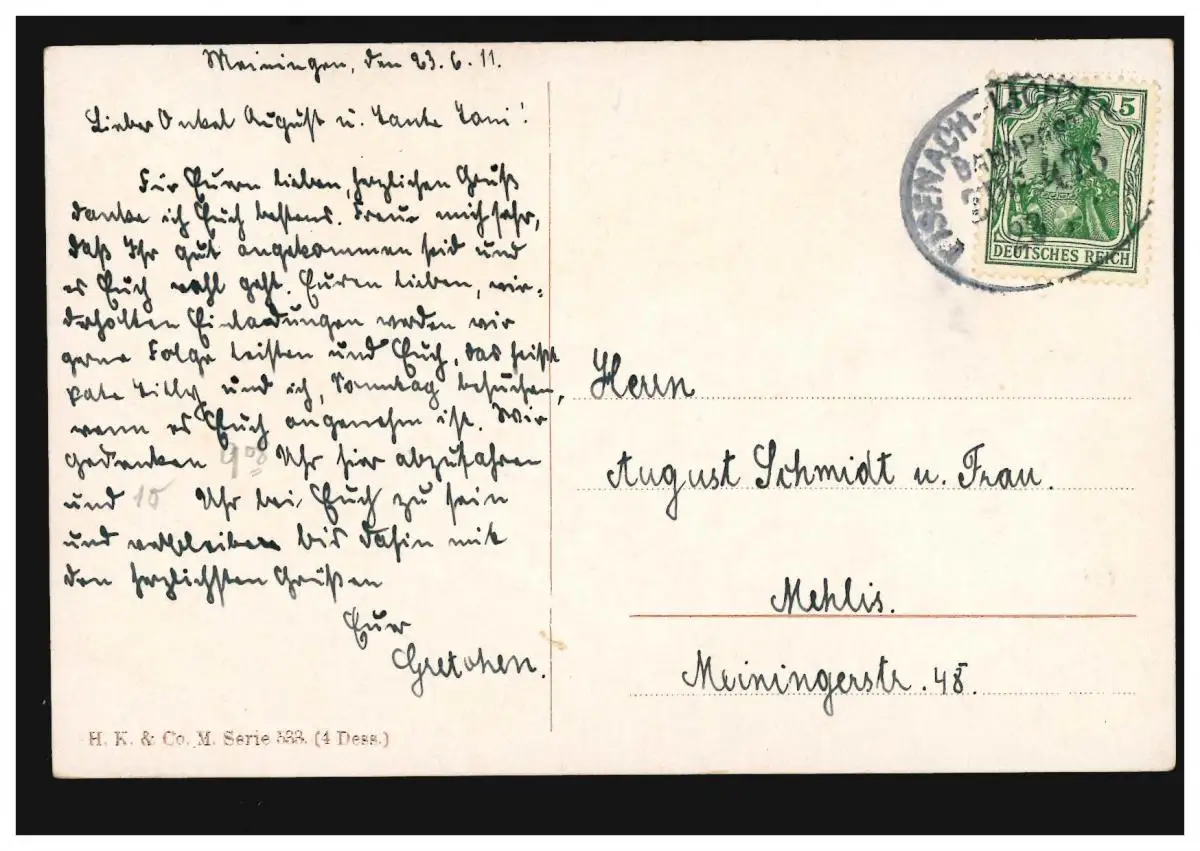 Meiningen, den 23.6.11.
Lieber Onkel August u. Tante Toni!
Für Euern lieben, herzlichen Gruß
danke ich Euch bestens. Freue mich sehr,
daß Ihr gut angekommen seid und
es Euch wohl geht. Euren lieben, wie-
derholten Einladungen werden wir
gerne Folge leisten und Euch, das heißt
Tilly und ich, Sonntag besuchen,
wenn es Euch angenehm ist. Wir
gedenken 9⁰⁸ Uhr hier abzufahren
und 10 Uhr bei Euch zu sein
und verbleibe bis dahin mit
den herzlichsten Grüßen
Eure
Gretchen.
H. K. & Co. M. Serie 533. (4 Dess.)
EISENACH-LICHT
BAHNPOST
5 5
DEUTSCHES REICH
Herrn
August Schmidt u. Frau.
Mehlis.
Meiningerstr. 48.